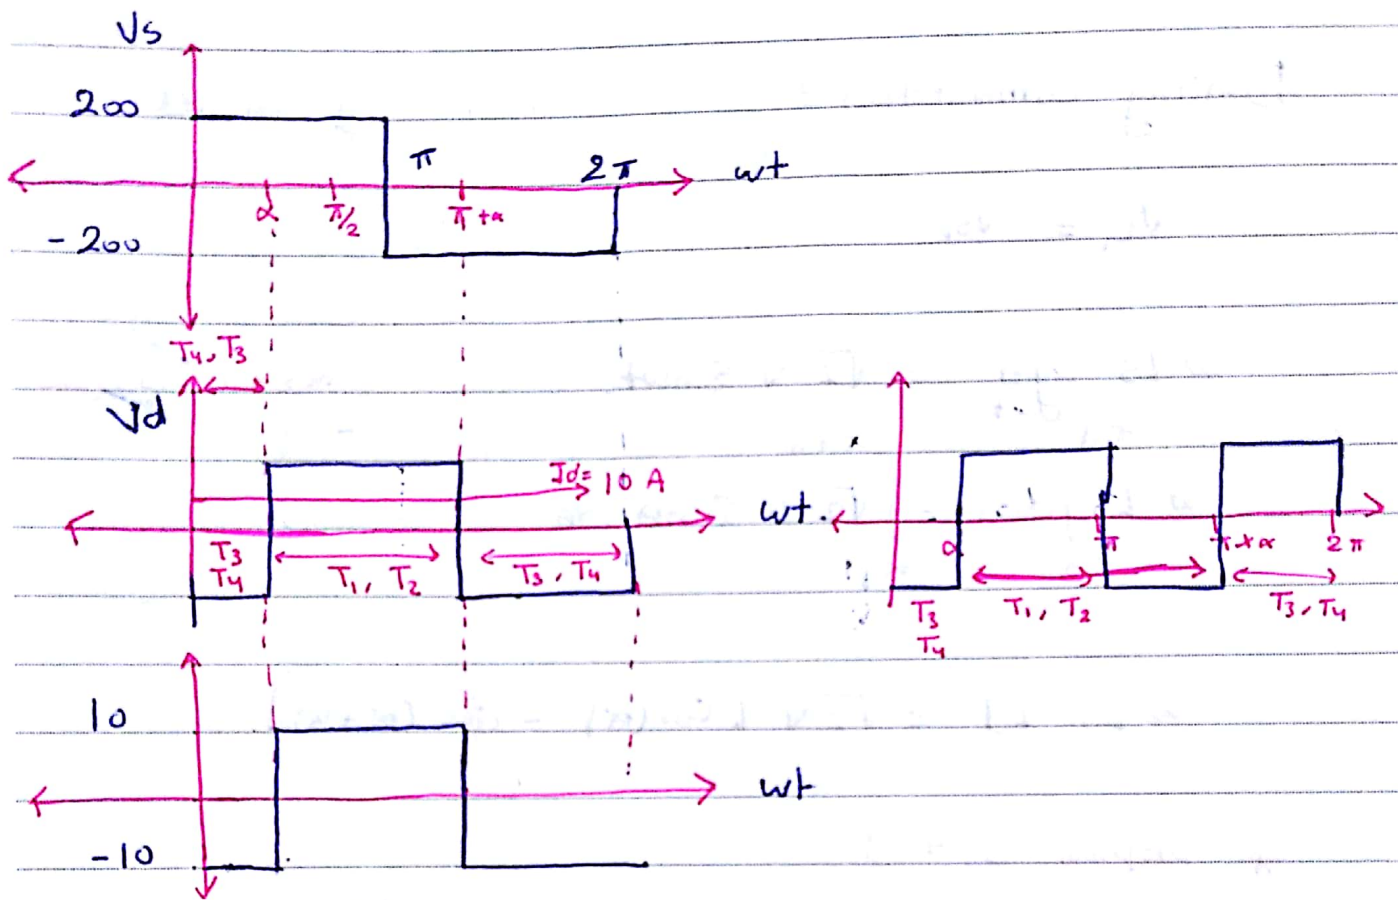 Vs
200
π
2π
wt
α
π/2
π+α
-200
T4, T3
Vd
Id= 10 A
wt.
T3
T4
T1, T2
T3, T4
α
π
π+α
2π
T3
T4
T1, T2
T3, T4
10
wt
-10